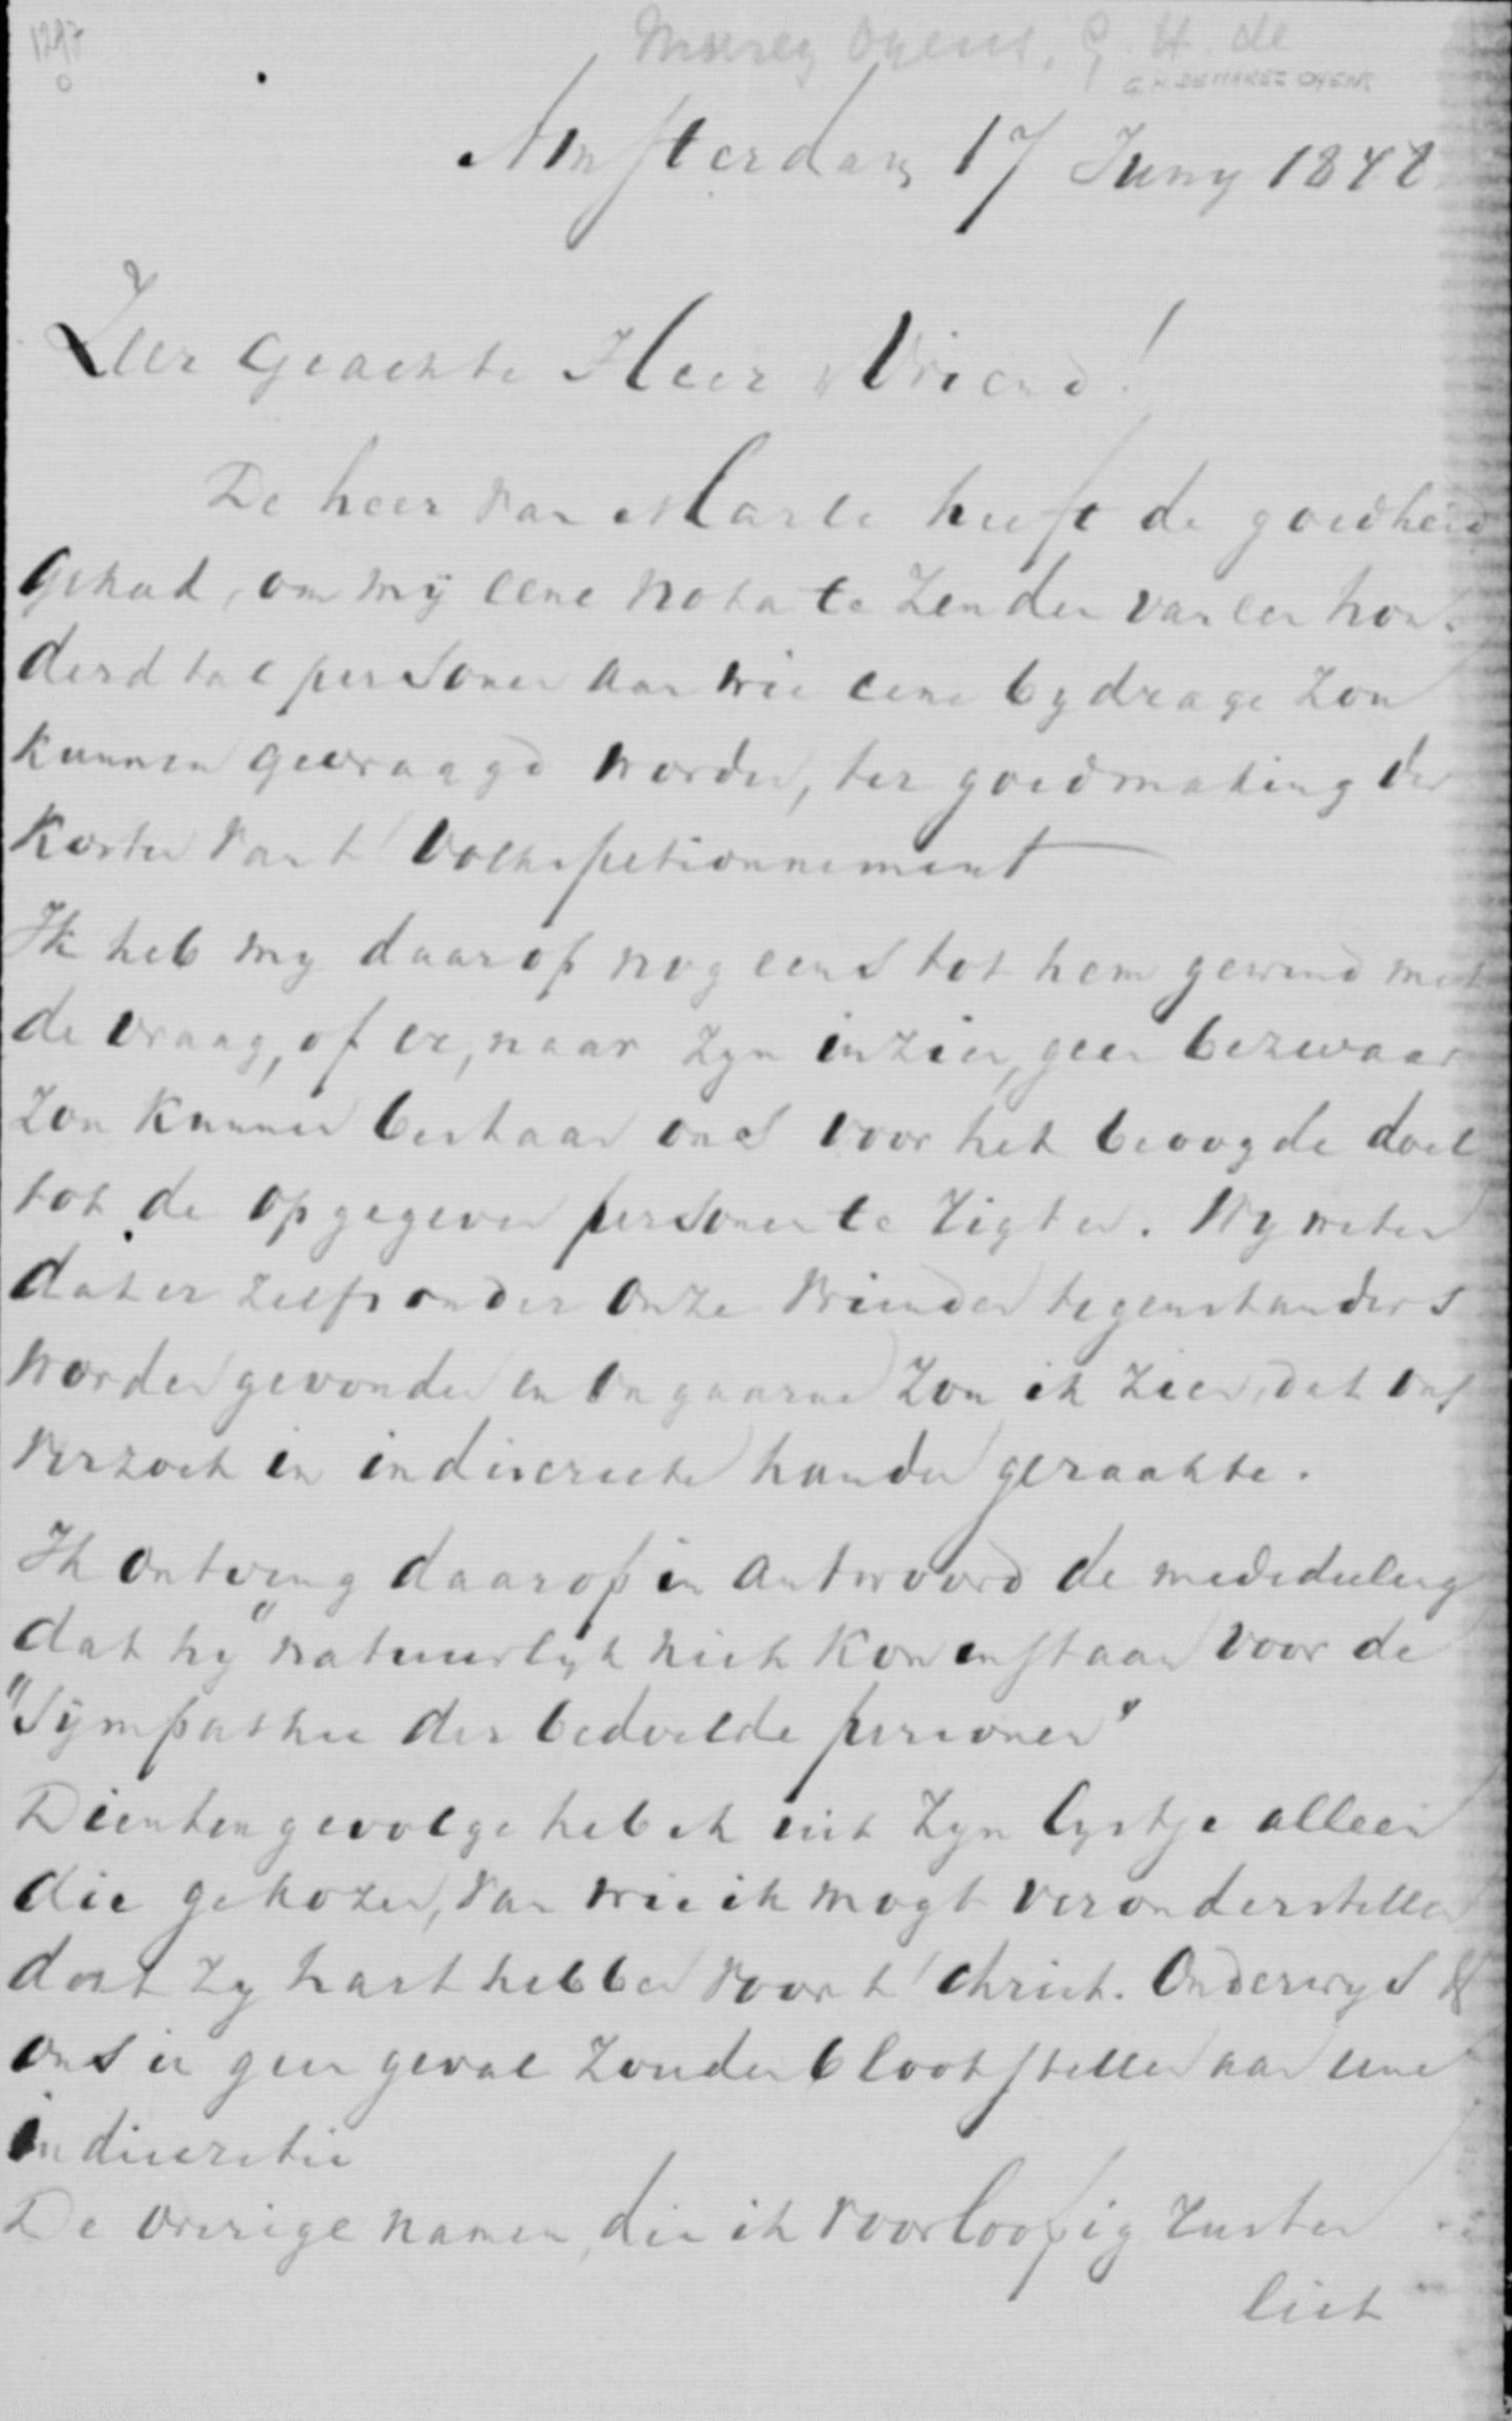 1297
Marez Oyens, G. H. de
G. H. DE MAREZ OYENS
Amsterdam 17 Juny 1878
Zeer Geachte Heer & Vriend!
De heer van Marle heeft de goedheid
gehad, om mij eene nota te zenden van een hon-
derdtal personen aan wie eene bydrage zou
kunnen gevraagd worden, ter goedmaking der
kosten van 't Volkspetionnement
Ik heb my daarop nog eens tot hem gewend met
de vraag, of er, naar zyn inzien, geen bezwaar
zou kunnen bestaan ons voor het beoogde doel
tot de opgegeven personen te rigten. Wy weten
dat er zelfs onder onze vrienden tegenstanders
worden gevonden en ongaarne zou ik zien, dat ons
verzoek in indiscreete handen geraakte.
Ik ontving daarop in antwoord de mededeeling
dat hy "natuurlyk niet kon instaan voor de
"Sympathie der bedoelde personen"
Dientengevolge heb ik uit zyn lystje alleen
die gekozen, van wie ik mogt veronderstellen
dat zy hart hebben voor 't Christ. Onderwys &
ons in geen geval zouden blootstellen aan eene
indiscretie
De overige namen, die ik voorloopig rusten
liet